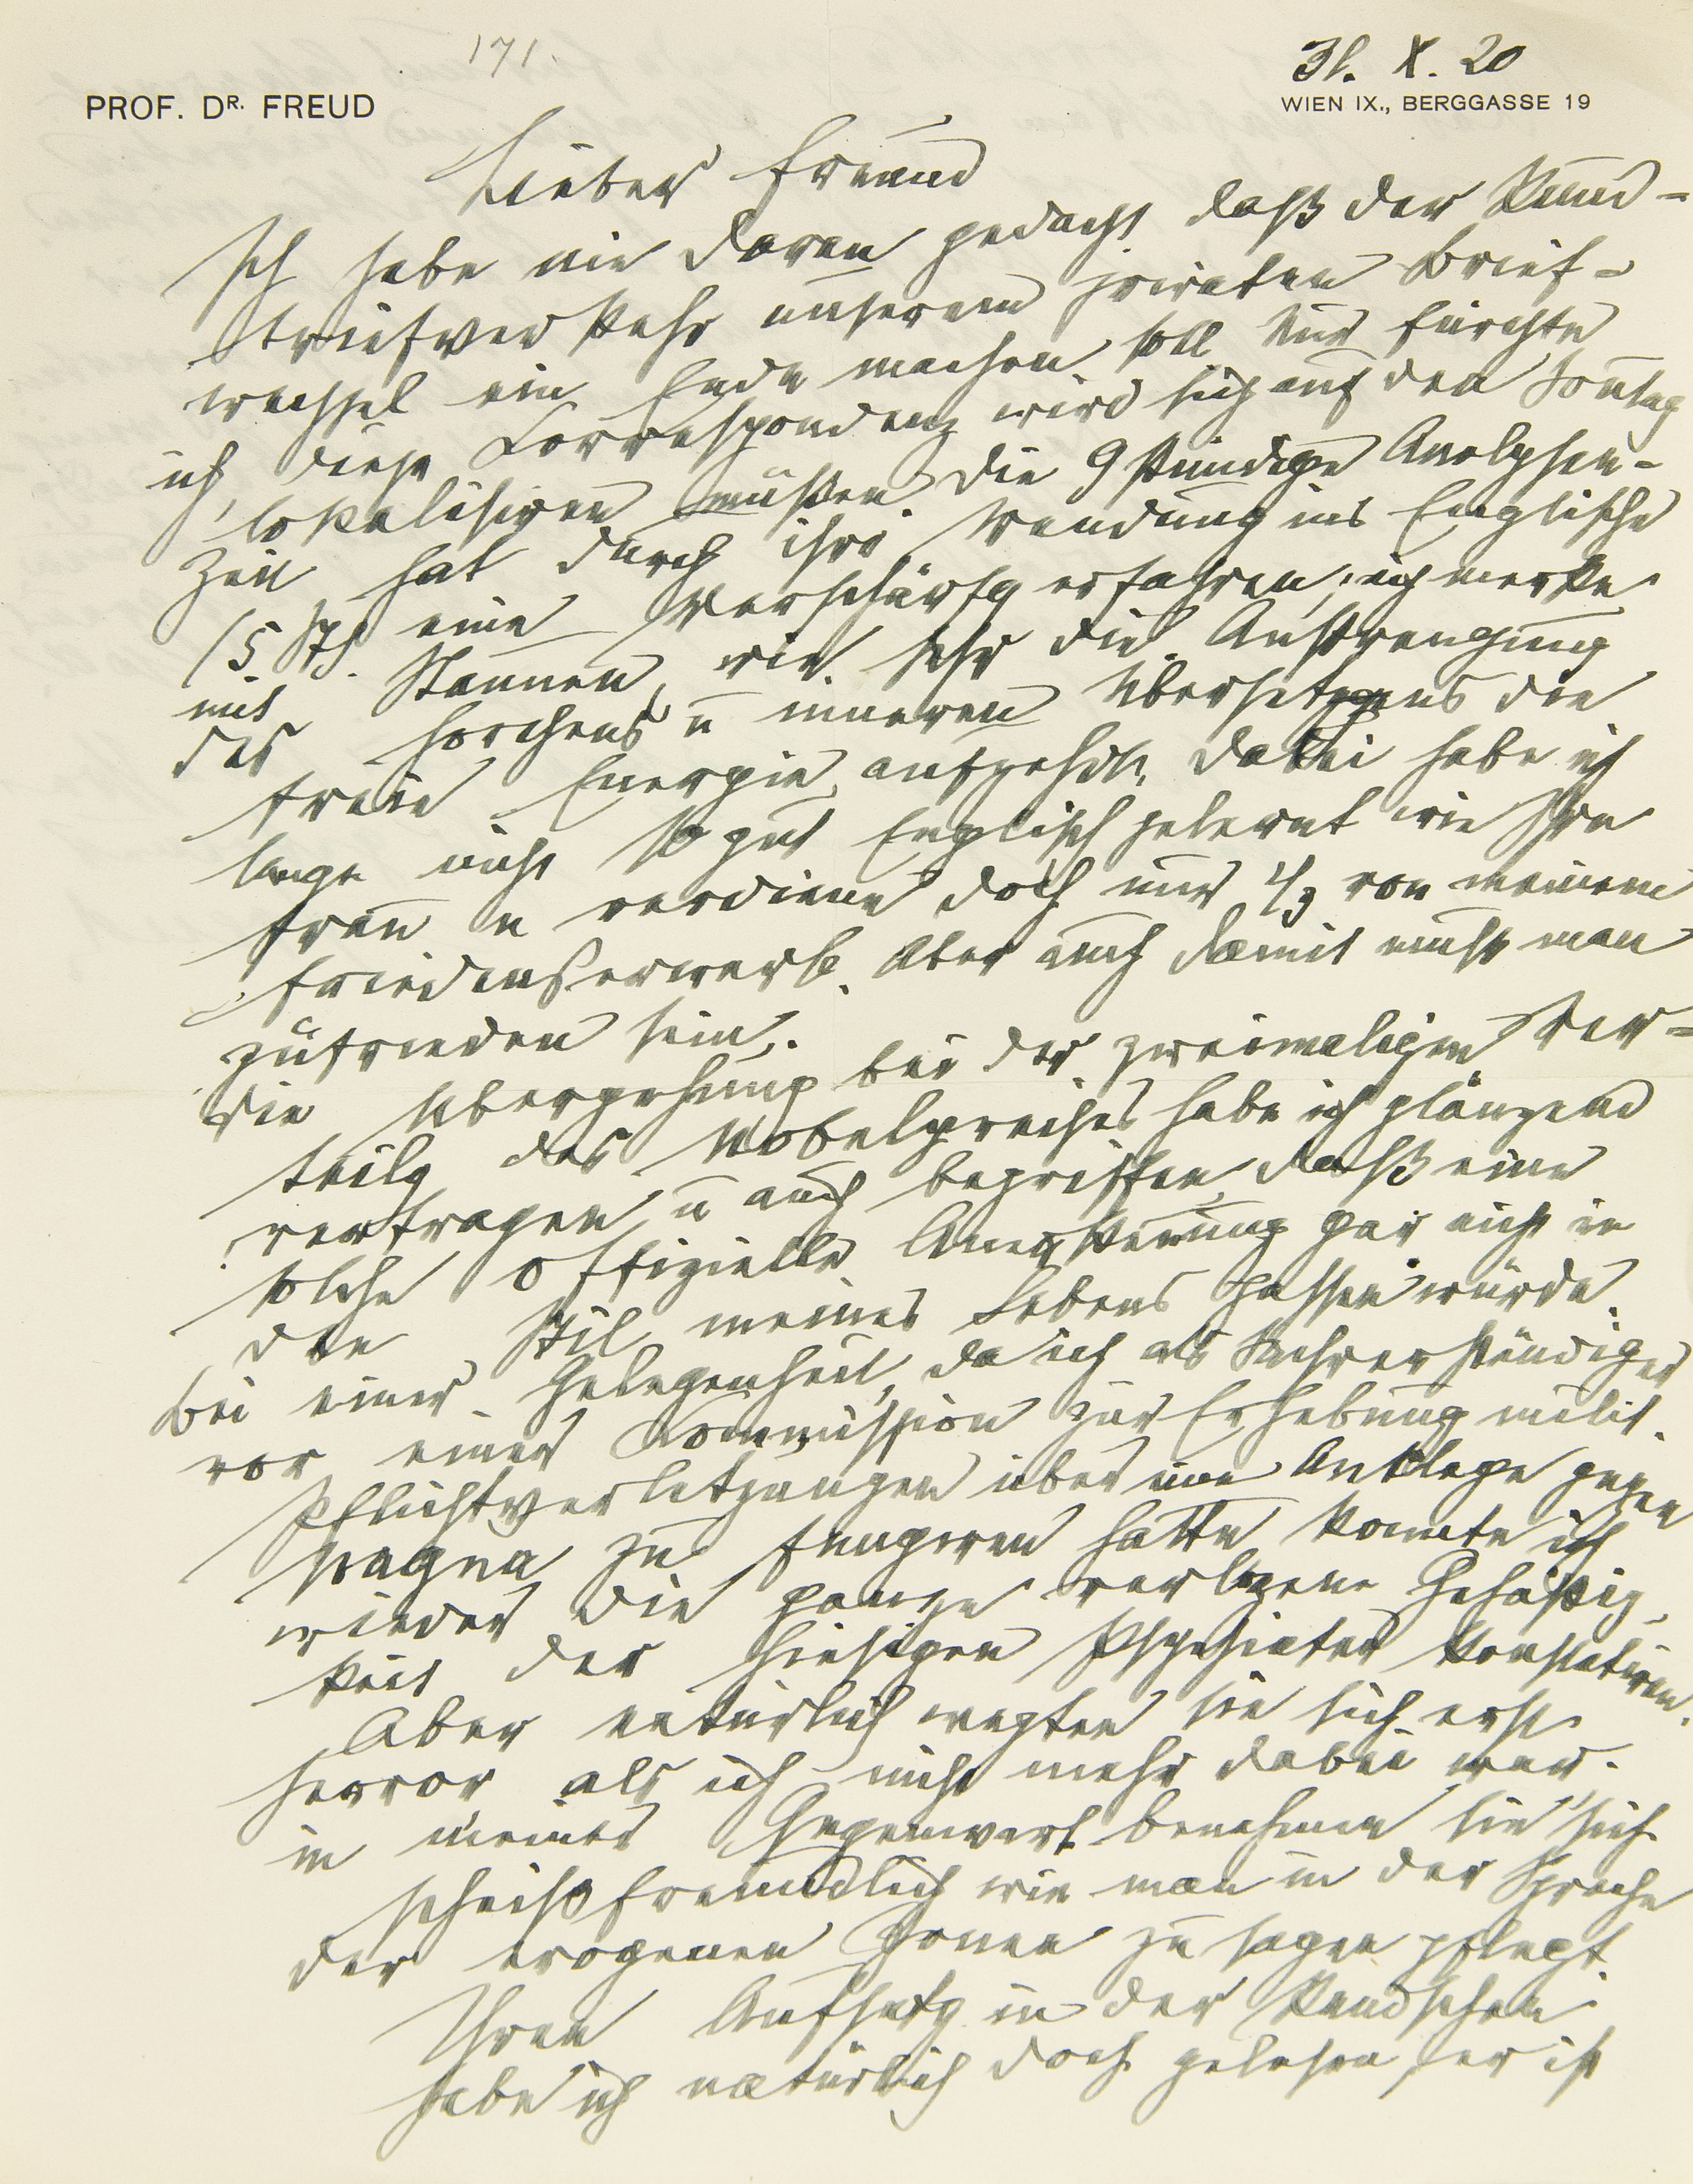 171.
31. X. 20
PROF. DR. FREUD
WIEN IX., BERGGASSE 19
Lieber Freund
Ich habe nie daran gedacht daß der Rund-
briefverkehr unserem privaten Brief-
wechsel ein Ende machen soll. Nur fürchte
ich, diese Correspondenz wird sich auf den Sonntag
lokalisiren müßen. Die 9 stündige Analysen-
Zeit hat durch ihre Wendung ins Englische
(5 St) eine Verschärfg erfahren; ich merke
mit Staunen, wie sehr die Anstrengung
des Horchens u inneren Übersetzens die
freie Energie aufzehrt. Dabei habe ich
lange nicht so gut Englisch gelernt wie Ihre
Frau u verdiene doch nur 1/3 von meinem
Friedenserwerb. Aber auch damit muß man
zufrieden sein.
Die Übergehung bei der zweimaligen Ver-
teilg des Nobelpreises habe ich glänzend
vertragen u auch begriffen, daß eine
solche offizielle Anerkennung gar nicht in
den Stil meines Lebens passen würde.
Bei einer Gelegenheit, da ich als Sachverständiger
vor einer Commission zur Erhebung milit.
Pflichtverletzungen über eine Anklage gegen
Wagner zu fungiren hatte konnte ich
wieder die ganze verlogene Gehäßig-
keit der hiesigen Psychiater konstatiren.
Aber natürlich wagten sie sich erst
hervor als ich nicht mehr dabei war.
in meiner Gegenwart benahmen sie sich
scheißfreundlich wie man in der Sprache
der erogenen Zonen zu sagen pflegt.
Ihren Aufsatz in der Rundschau
habe ich natürlich doch gelesen, er ist